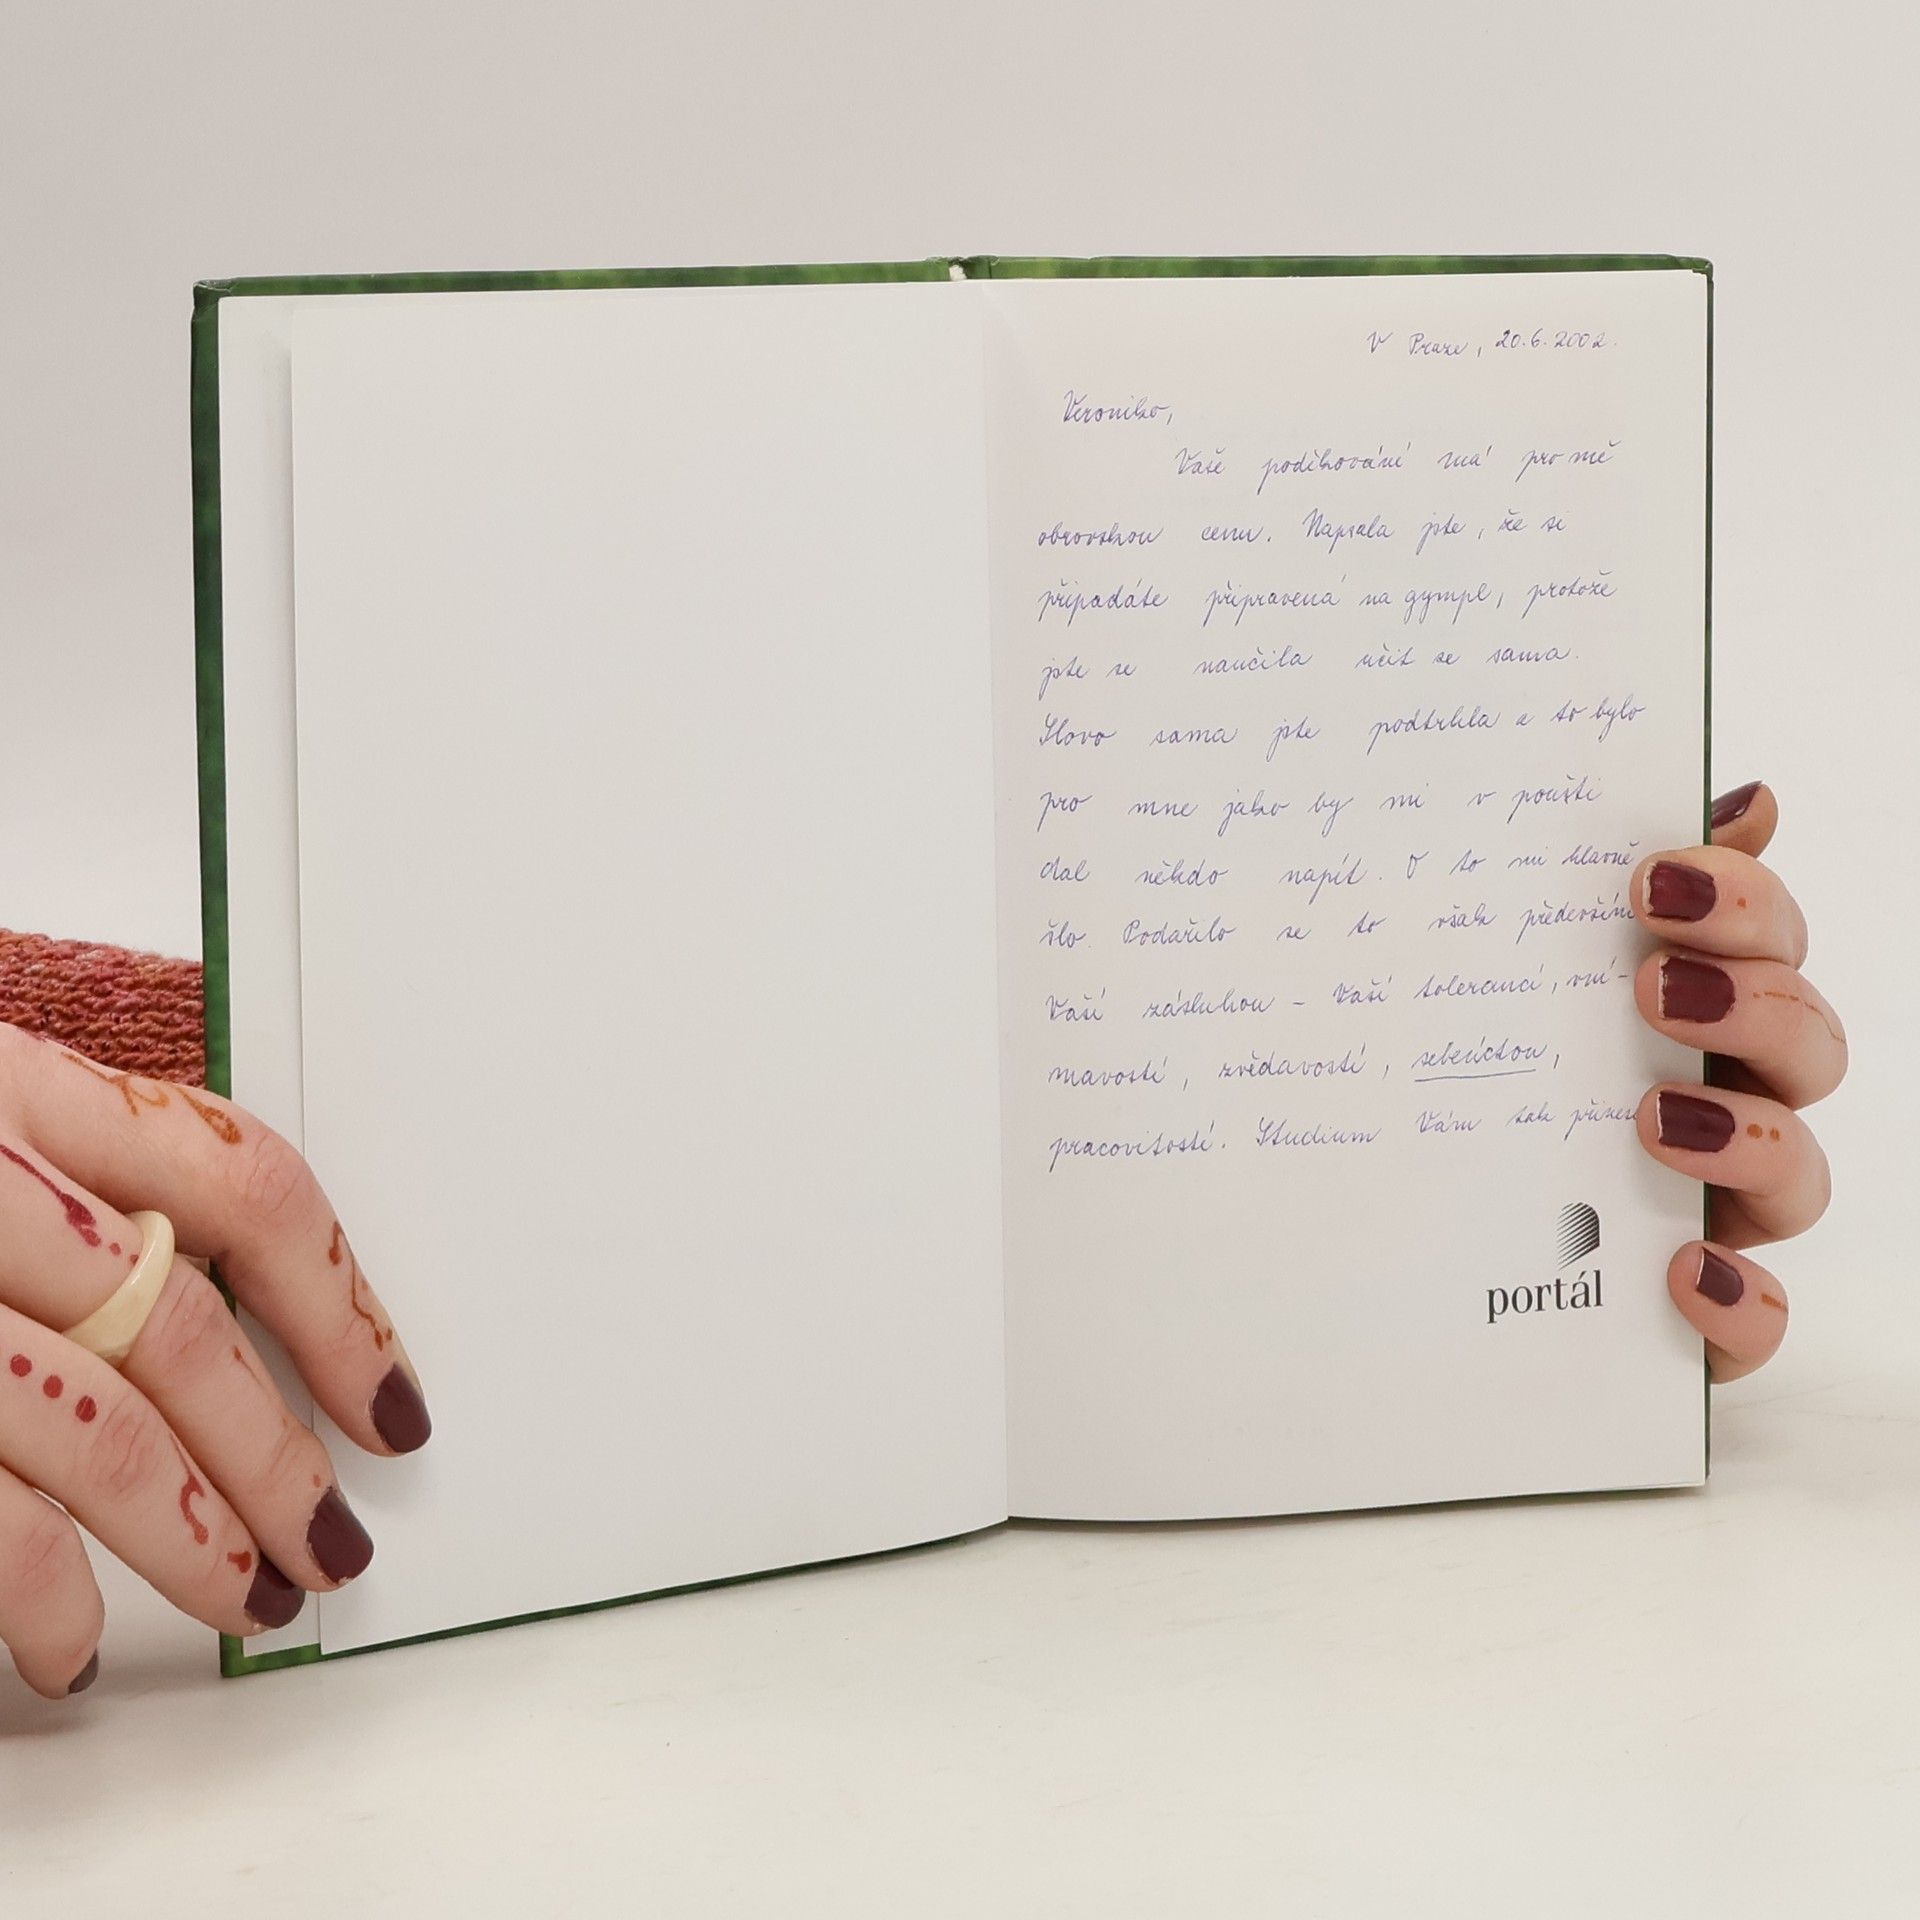 V Praze, 20.6.2002.
Veroniko,
Vaše poděkování má pro mě
obrovskou cenu. Napsala jste, že si
připadáte připravená na gympl, protože
jste se naučila učit se sama.
Slovo sama jste podtrhla a to bylo
pro mne jako by mi v poušti
dal někdo napít. O to mi hlavně
šlo. Podařilo se to však především
Vaší zásluhou – Vaší tolerancí, vní-
mavostí, zvědavostí, sebeúctou,
pracovitostí. Studium Vám tak
portál